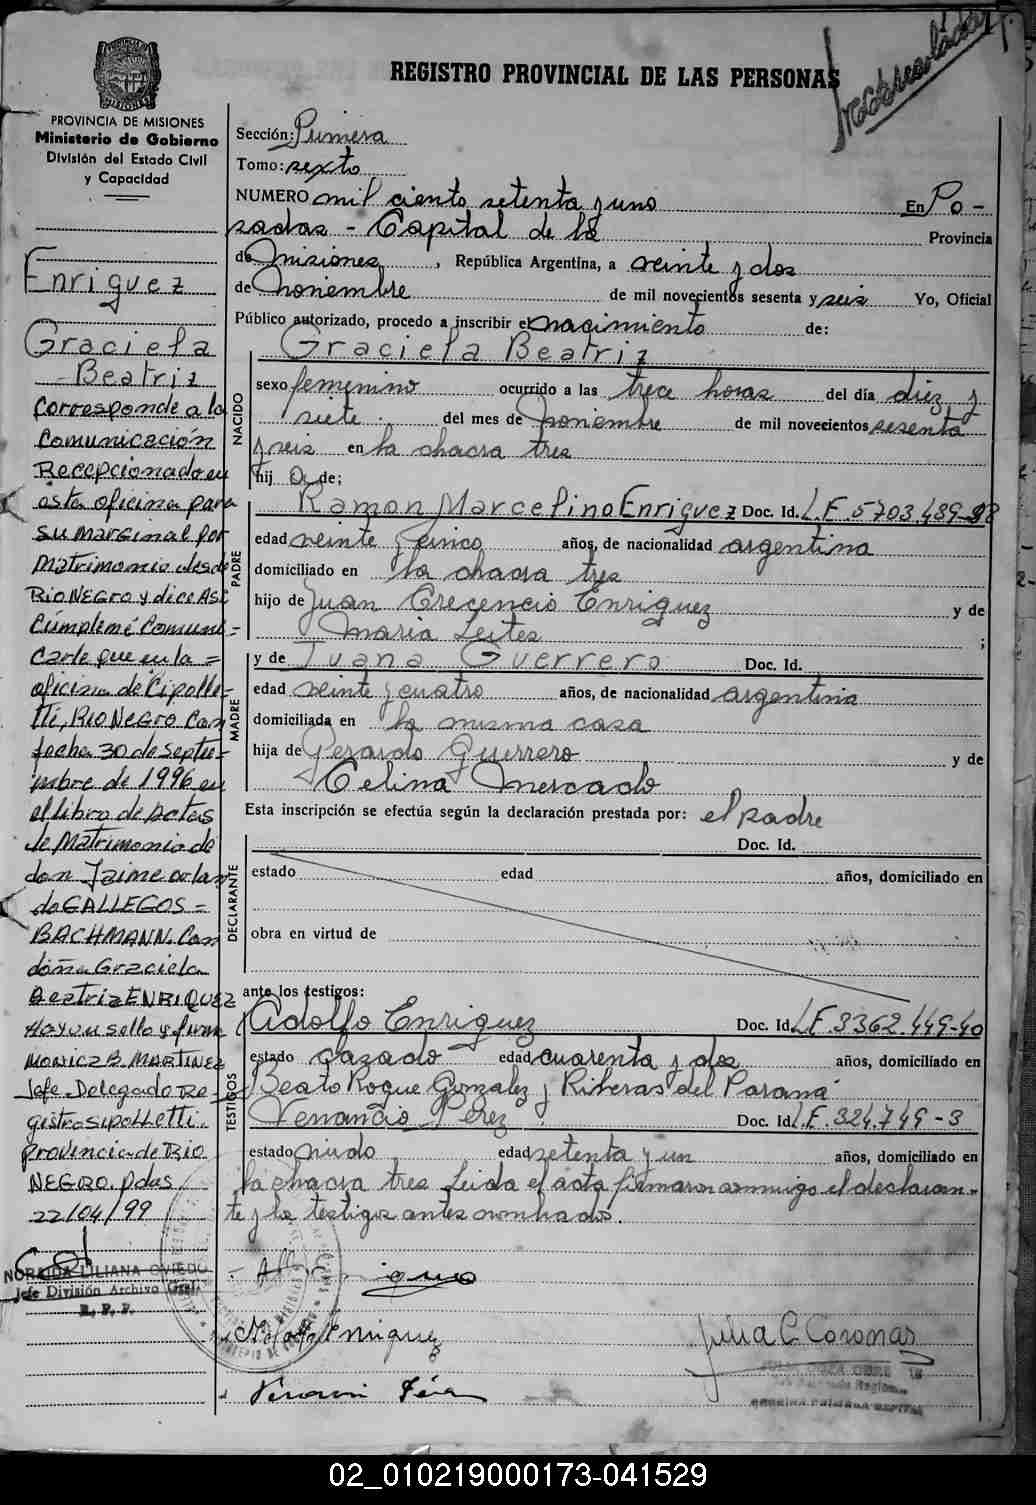 REGISTRO PROVINCIAL DE LAS PERSONAS
PROVINCIA DE MISIONES
Ministerio de Gobierno
División del Estado Civil
y Capacidad
Sección: Primera
Tomo: sexto
NUMERO mil ciento setenta y uno En Po-
sadas - Capital de la Provincia
de Misiones, República Argentina, a veinte y dos
de Noviembre de mil novecientos sesenta y seis Yo, Oficial
Público autorizado, procedo a inscribir el nacimiento de:
Graciela Beatriz
NACIDO
sexo femenino ocurrido a las trece horas del día diez y
siete del mes de noviembre de mil novecientos sesenta
y seis en la chacra tres
hij a de;
PADRE
Ramon Marcelino Enriguez Doc. Id. L.E. 5703.489
edad veinte y cinco años, de nacionalidad argentina
domiciliado en la chacra tres
hijo de Juan Crecencio Enriquez y de
Maria Leites ;
MADRE
y de Juana Guerrero Doc. Id.
edad veinte y cuatro años, de nacionalidad argentina
domiciliada en la misma casa
hija de Gerardo Guerrero y de
Celina Mercado
Esta inscripción se efectúa según la declaración prestada por: el padre
DECLARANTE
Doc. Id.
estado edad años, domiciliado en
obra en virtud de
ante los testigos:
TESTIGOS
Adolfo Enriguez Doc. Id. L.E. 3362.449-40
estado Cazado edad cuarenta y dos años, domiciliado en
Beato Roque Gonzalez y Riberas del Paraná
Venancio Perez Doc. Id. L.E. 324.749-3
estado viudo edad setenta y un años, domiciliado en
la chacra tres Leida el acta firmaron conmigo el declaran-
te y los testigos antes nombrados.
Enriquez
Julia C. Coronas
Enriguez
Graciela
Beatriz
Corresponde a la
Comunicación
Recepcionado en
esta oficina para
su marginal por
Matrimonio desde
RIO NEGRO y dice Asi
Cúmpleme Comuni=
carle que en la =
oficina de Cipolle=
tti, RIO NEGRO Con
fecha 30 de septie=
mbre de 1996 en
el libro de actas
de Matrimonio de
don Jaime orlan
do GALLEGOS =
BACHMANN. Con
doña Graciela
Beatriz ENRIQUEZ
Hay un sello y firma
MONICA B. MARTINEZ
Jefe Delegado Re-
gistro Sipolletti.
provincia de Rio
NEGRO. pdas
22/04/99
NORAIDA LILIANA OVIEDO
Jefe División Archivo Gral.
R. P. P.
02_010219000173-041529